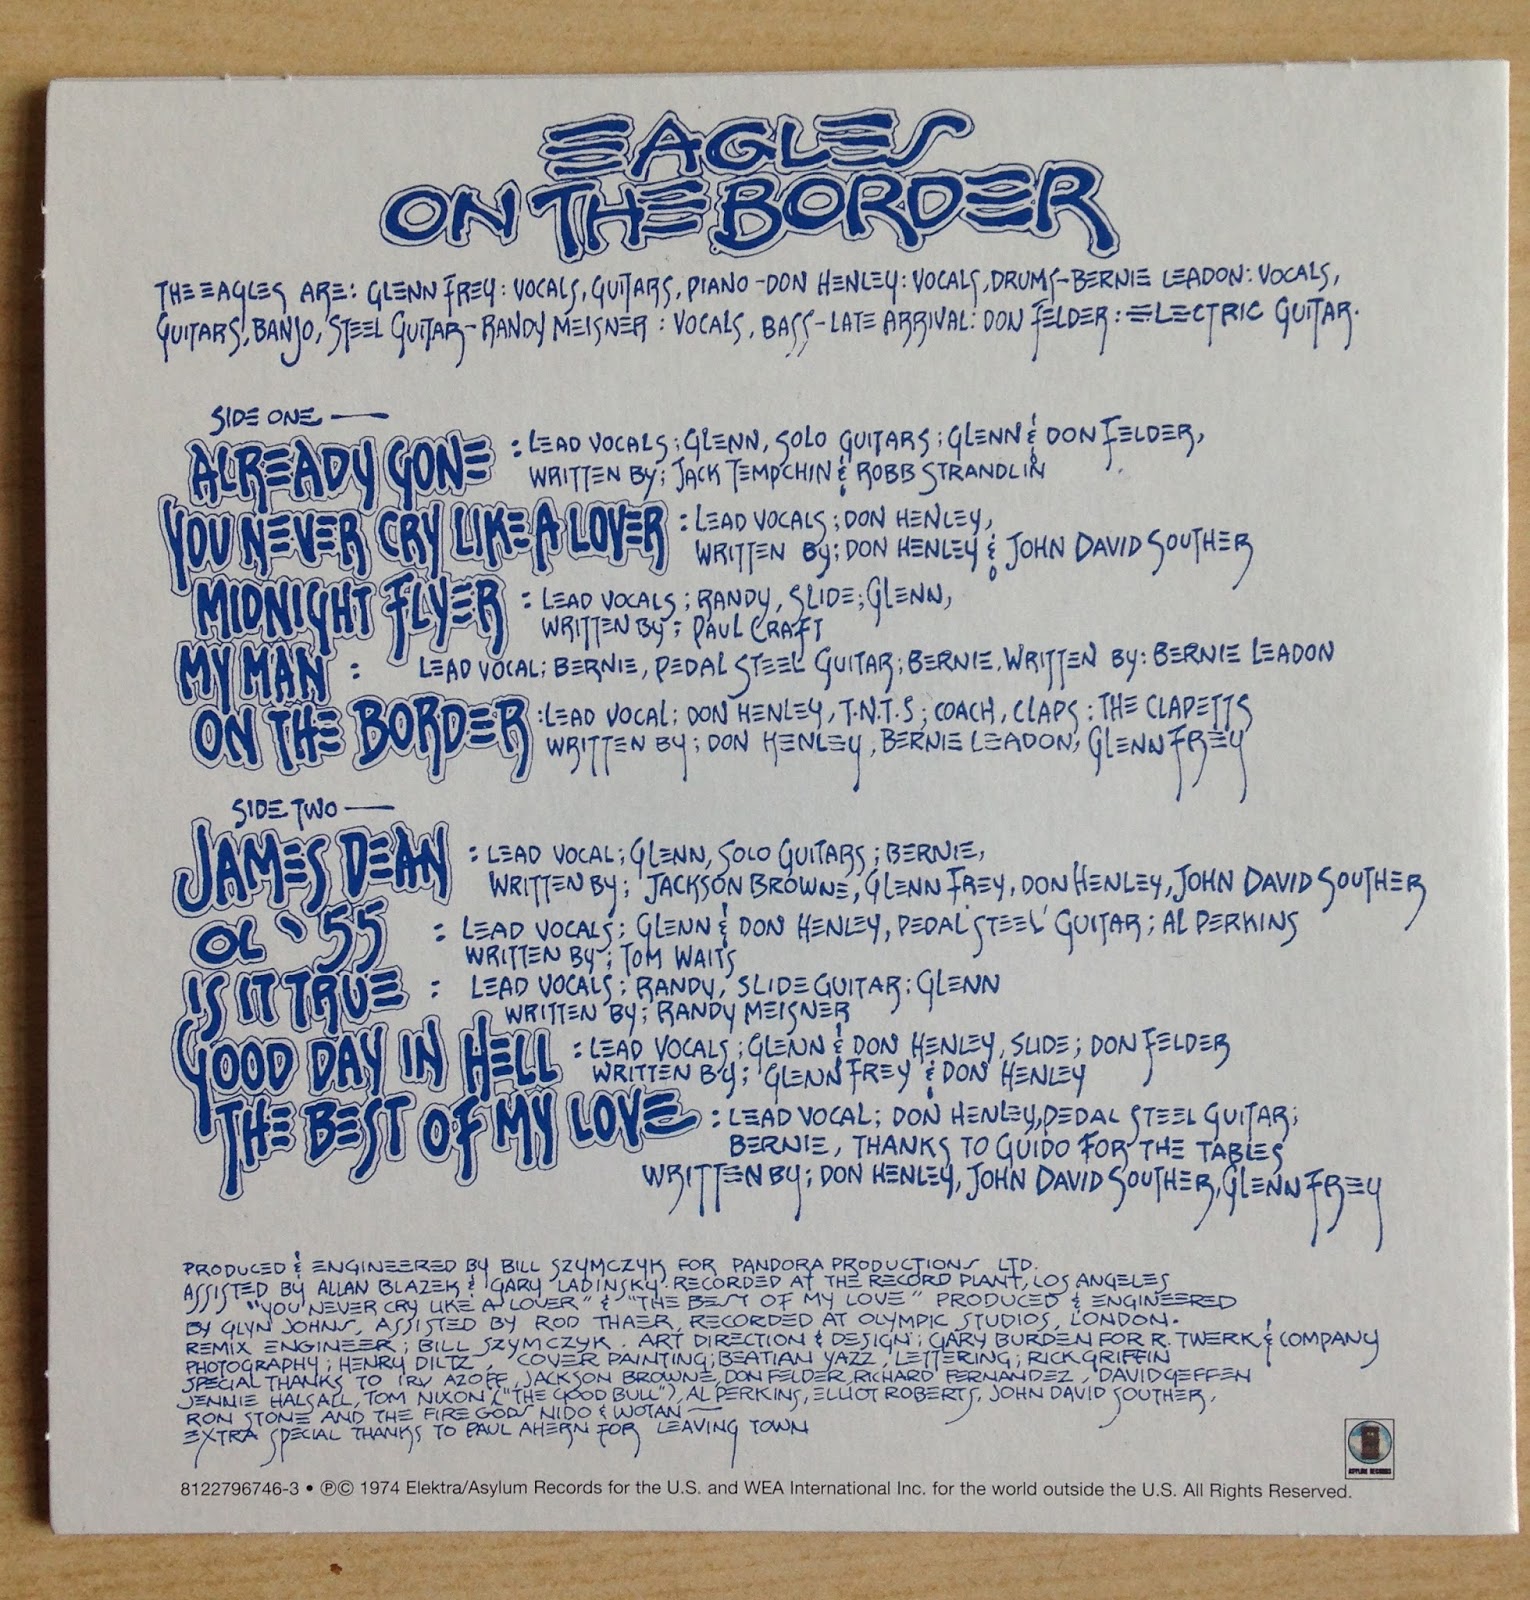 EAGLES
ON THE BORDER
THE EAGLES ARE: GLENN FREY: VOCALS, GUITARS, PIANO - DON HENLEY: VOCALS, DRUMS - BERNIE LEADON: VOCALS,
GUITARS, BANJO, STEEL GUITAR - RANDY MEISNER: VOCALS, BASS - LATE ARRIVAL: DON FELDER: ELECTRIC GUITAR.
SIDE ONE —
ALREADY GONE : LEAD VOCALS; GLENN, SOLO GUITARS; GLENN & DON FELDER,
WRITTEN BY; JACK TEMPCHIN & ROBB STRANDLIN
YOU NEVER CRY LIKE A LOVER : LEAD VOCALS; DON HENLEY,
WRITTEN BY; DON HENLEY & JOHN DAVID SOUTHER
MIDNIGHT FLYER : LEAD VOCALS; RANDY, SLIDE; GLENN,
WRITTEN BY; PAUL CRAFT
MY MAN : LEAD VOCAL; BERNIE, PEDAL STEEL GUITAR; BERNIE, WRITTEN BY: BERNIE LEADON
ON THE BORDER : LEAD VOCAL; DON HENLEY, T.N.T.S; COACH, CLAPS: THE CLAPETTS
WRITTEN BY; DON HENLEY, BERNIE LEADON, GLENN FREY
SIDE TWO —
JAMES DEAN : LEAD VOCAL; GLENN, SOLO GUITARS; BERNIE,
WRITTEN BY; JACKSON BROWNE, GLENN FREY, DON HENLEY, JOHN DAVID SOUTHER
OL '55 : LEAD VOCALS; GLENN & DON HENLEY, PEDAL STEEL GUITAR; AL PERKINS
WRITTEN BY; TOM WAITS
IS IT TRUE : LEAD VOCALS; RANDY, SLIDE GUITAR: GLENN
WRITTEN BY; RANDY MEISNER
GOOD DAY IN HELL : LEAD VOCALS; GLENN & DON HENLEY, SLIDE; DON FELDER
WRITTEN BY; GLENN FREY & DON HENLEY
THE BEST OF MY LOVE : LEAD VOCAL; DON HENLEY, PEDAL STEEL GUITAR;
BERNIE, THANKS TO GUIDO FOR THE TABLES
WRITTEN BY; DON HENLEY, JOHN DAVID SOUTHER, GLENN FREY
PRODUCED & ENGINEERED BY BILL SZYMCZYK FOR PANDORA PRODUCTIONS LTD.
ASSISTED BY ALLAN BLAZEK & GARY LADINSKY. RECORDED AT THE RECORD PLANT, LOS ANGELES
"YOU NEVER CRY LIKE A LOVER" & "THE BEST OF MY LOVE" PRODUCED & ENGINEERED
BY GLYN JOHNS, ASSISTED BY ROD THAER, RECORDED AT OLYMPIC STUDIOS, LONDON.
REMIX ENGINEER; BILL SZYMCZYK. ART DIRECTION & DESIGN; GARY BURDEN FOR R. TWERK & COMPANY
PHOTOGRAPHY; HENRY DILTZ, COVER PAINTING; BEATIAN YAZZ, LETTERING; RICK GRIFFIN
SPECIAL THANKS TO IRV AZOFF, JACKSON BROWNE, DON FELDER, RICHARD FERNANDEZ, DAVID GEFFEN
JENNIE HALSALL, TOM NIXON ("THE GOOD BULL"), AL PERKINS, ELLIOT ROBERTS, JOHN DAVID SOUTHER,
RON STONE AND THE FIRE GODS NIDO & WOTAN —
EXTRA SPECIAL THANKS TO PAUL AHERN FOR LEAVING TOWN
ASYLUM RECORDS
8122796746-3 • ℗© 1974 Elektra/Asylum Records for the U.S. and WEA International Inc. for the world outside the U.S. All Rights Reserved.